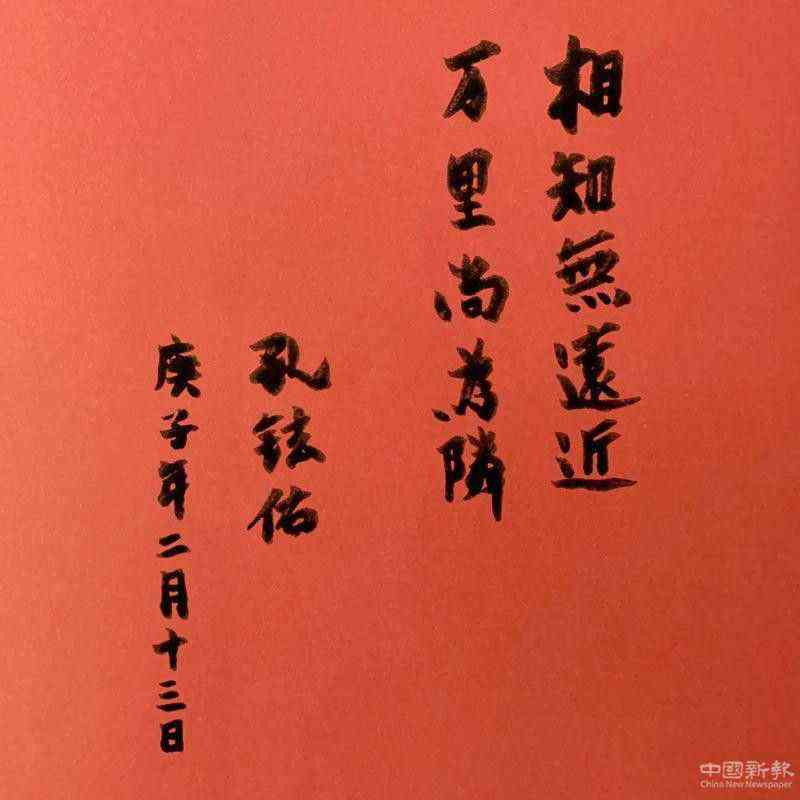 相知無遠近
万里尚為隣
孔鉉佑
庚子年二月十三日
中國新報
China New Newspaper